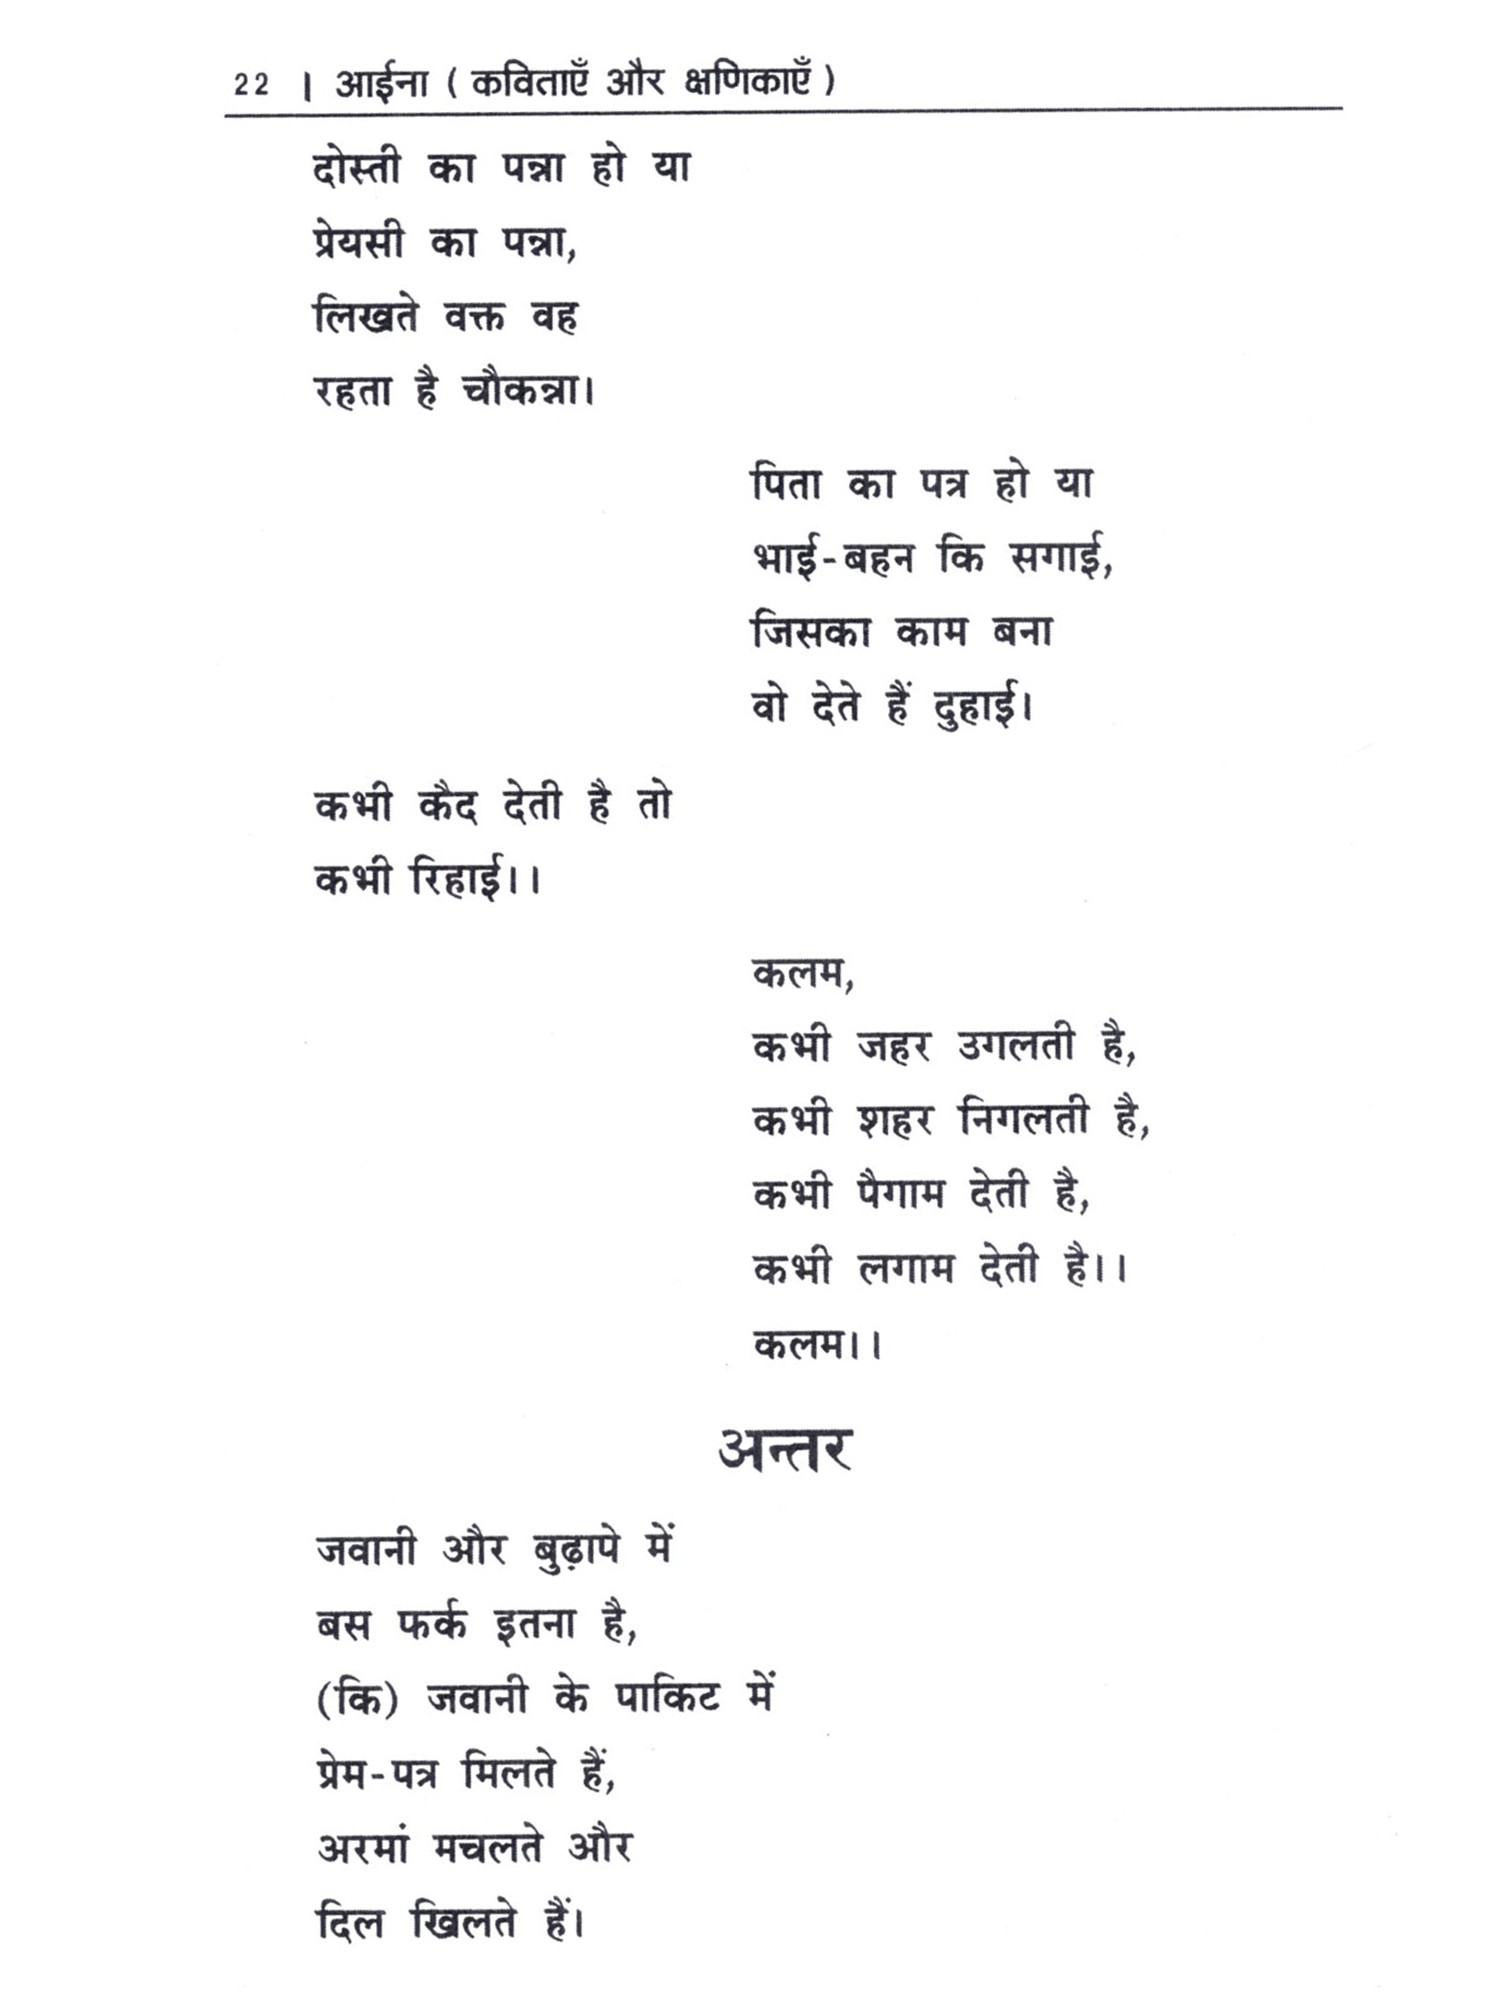 22 | आईना ( कविताएँ और क्षणिकाएँ )
दोस्ती का पन्ना हो या
प्रेयसी का पन्ना,
लिखते वक्त वह
रहता है चौकन्ना।
पिता का पत्र हो या
भाई-बहन कि सगाई,
जिसका काम बना
वो देते हैं दुहाई।
कभी कैद देती है तो
कभी रिहाई।।
कलम,
कभी जहर उगलती है,
कभी शहर निगलती है,
कभी पैगाम देती है,
कभी लगाम देती है।।
कलम।।
अन्तर
जवानी और बुढ़ापे में
बस फर्क इतना है,
(कि) जवानी के पाकिट में
प्रेम-पत्र मिलते हैं,
अरमां मचलते और
दिल खिलते हैं।